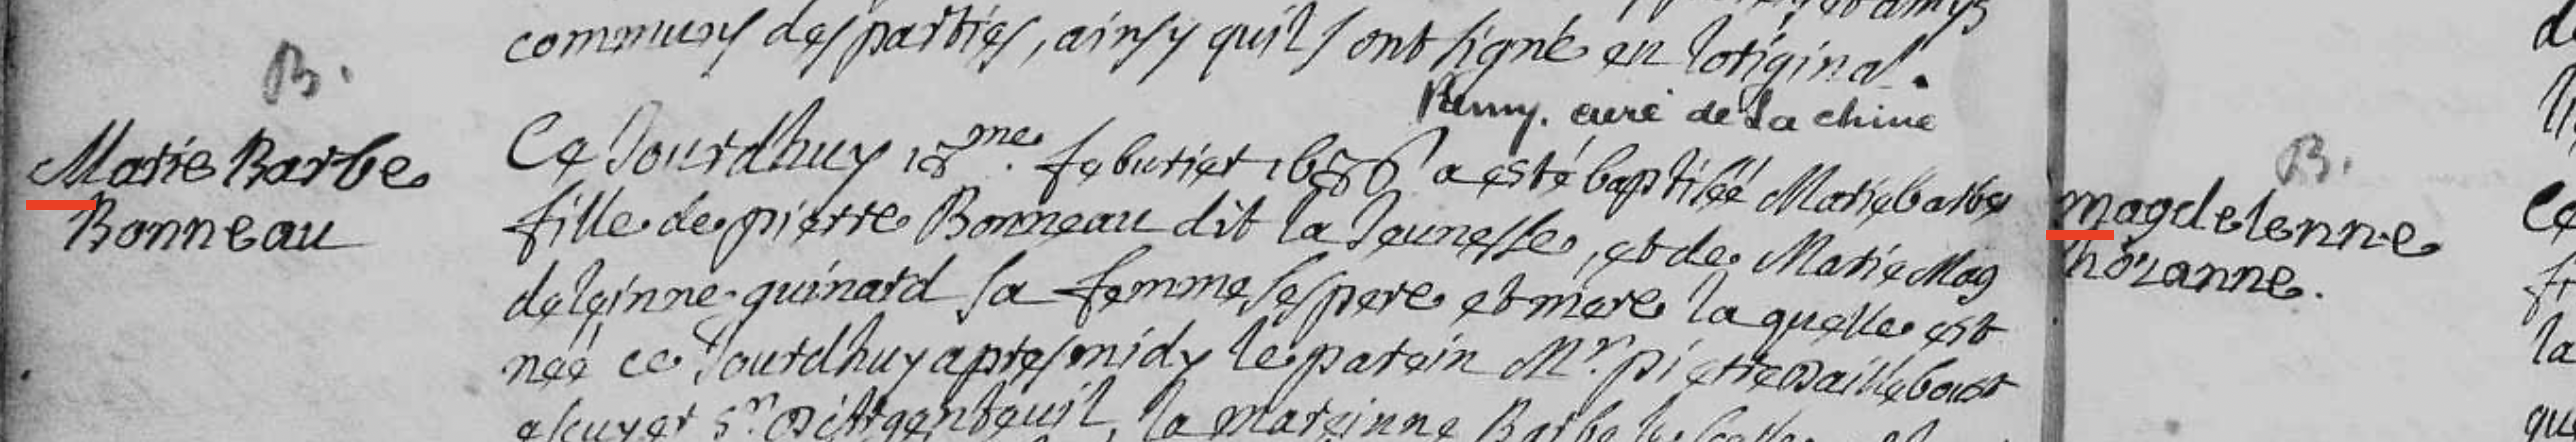 B.
Marie Barbe
Bonneau
communs des parties, ainsy quils ont signé en loriginal.
Remy. curé de la chine
Ce Jourdhuy 18me. feburier 1686 a esté baptiséé Marie barbe
fille de pierre Bonneau dit la Jeunesse, et de Marie Mag
deleinne guinard sa femme ses pere et mere laquelle est
néé ce Jourdhuy apres midy le parein Mr. pierre Dailleboust
escuyer Sr. D'Argenteuil, la mareinne Barbe
B.
magdelenne